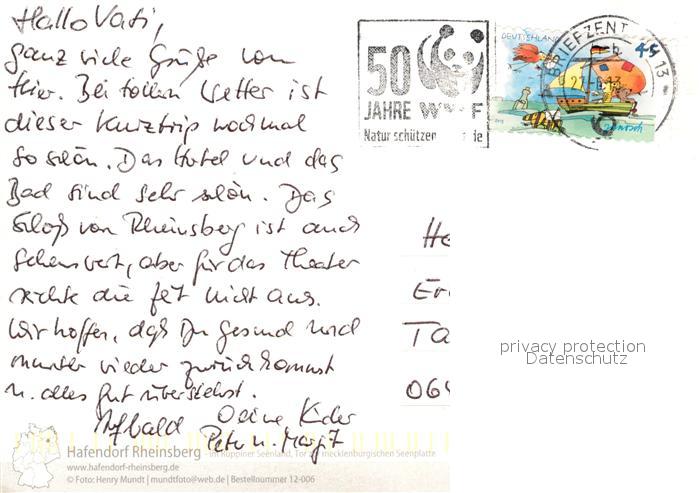 Hallo Vati,
ganz viele Grüße von
hier. Bei tollem Wetter ist
dieser Kurztrip nochmal
so schön. Das Hotel und das
Bad sind sehr schön. Das
Schloß von Rheinsberg ist auch
sehenswert, aber für das Theater
reichte die Zeit nicht aus.
Wir hoffen, daß Du gesund und
munter wieder zurückkommst
u. alles gut überstehst.
Aufbald Deine Kinder
Peter u.
50
JAHRE WWF
Natur schützen
DEUTSCHLAND
45
BRIEFZENT
13
He
Er
Ta
06
privacy protection
Datenschutz
Hafendorf Rheinsberg - im Ruppiner Seenland, Tor zur mecklenburgischen Seenplatte
www.hafendorf-rheinsberg.de
© Foto: Henry Mundt | mundtfoto@web.de | Bestellnummer 12-006